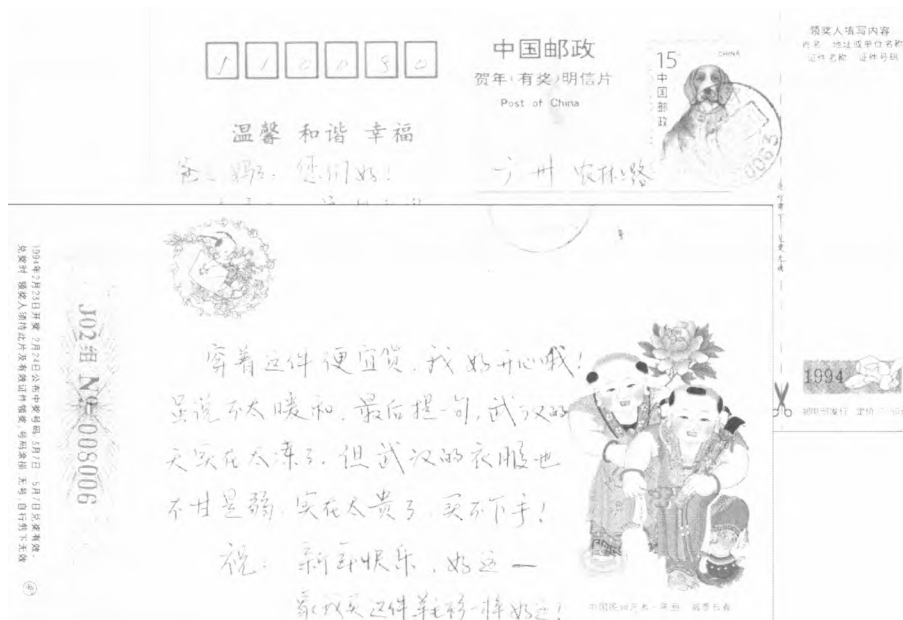 510080
中国邮政
贺年（有奖）明信片
Post of China
15
CHINA
中国邮政
温馨 和谐 幸福
爸、妈：您们好！
广州 农林上路
领奖人填写内容
姓名 地址或单位名称
证件名称 证件号码
1994年2月23日开奖 2月24日公布中奖号码 3月7日 5月7日兑奖有效。
兑奖时 领奖人须持此片及有效证件领奖，号码涂损 无号，自行剪下无效
J02组 No 008006
穿着这件便宜货，我好开心哦！
虽说不太暖和，最后提一句，武汉的
天实在太冻了，但武汉的衣服也
不甘示弱，实在太贵了，买不下手！
祝：新年快乐，好运一
象我买这件羊毛衫一样好运！
1994
邮电部发行